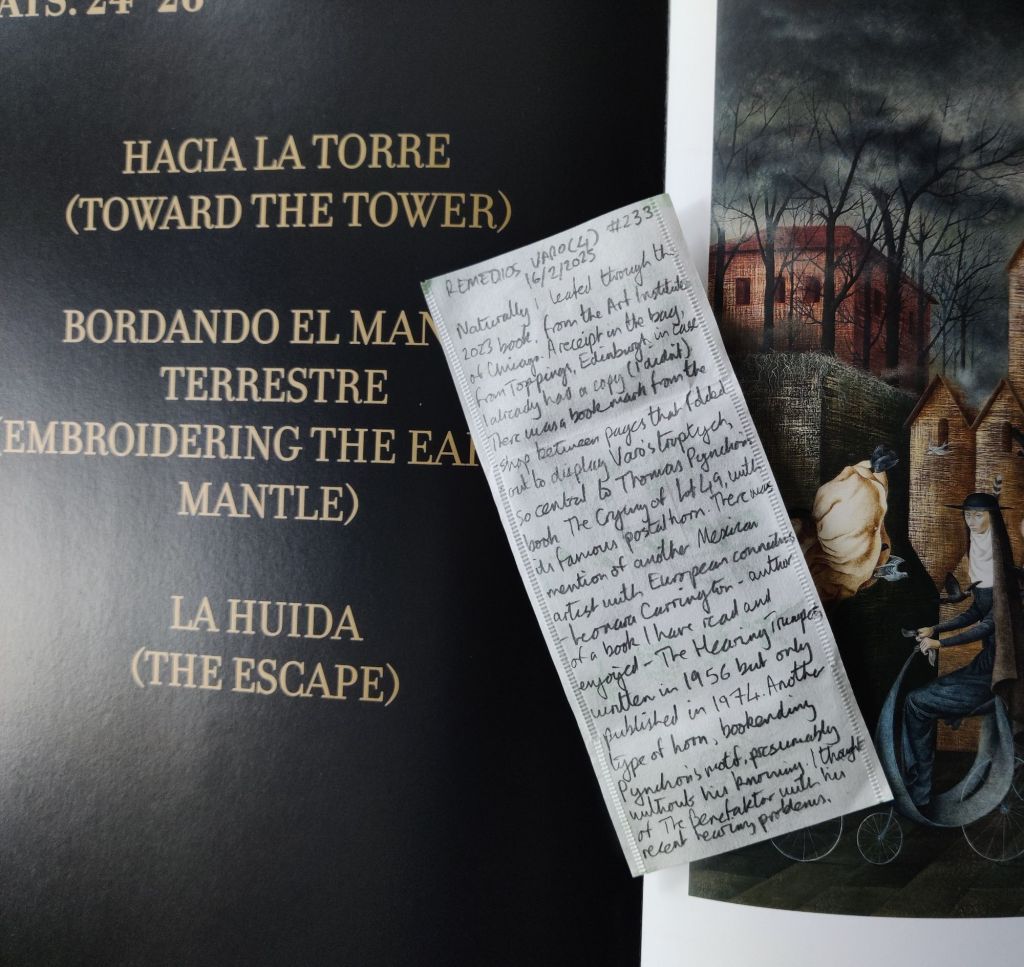 ATS. 24 26
HACIA LA TORRE
(TOWARD THE TOWER)
BORDANDO EL MAN
TERRESTRE
(EMBROIDERING THE EA
MANTLE)
LA HUIDA
(THE ESCAPE)
REMEDIOS VARO (4) #233
16/2/2025
Naturally I leafed through the
2023 book from the Art Institute
of Chicago. A receipt in the bag,
from Toppings, Edinburgh, in case
I already had a copy (I didn't)
There was a bookmark from the
shop between pages that folded
out to display Varo's triptych,
so central to Thomas Pynchon's
book The Crying of Lot 49, with
its famous postal horn. There was
mention of another Mexican
artist with European connections
- Leonora Carrington - author
of a book I have read and
enjoyed - The Hearing Trumpet,
written in 1956 but only
published in 1974. Another
type of horn, bookending
Pynchon's motif, presumably
without his knowing. I thought
of The Benefaktor with his
recent hearing problems.